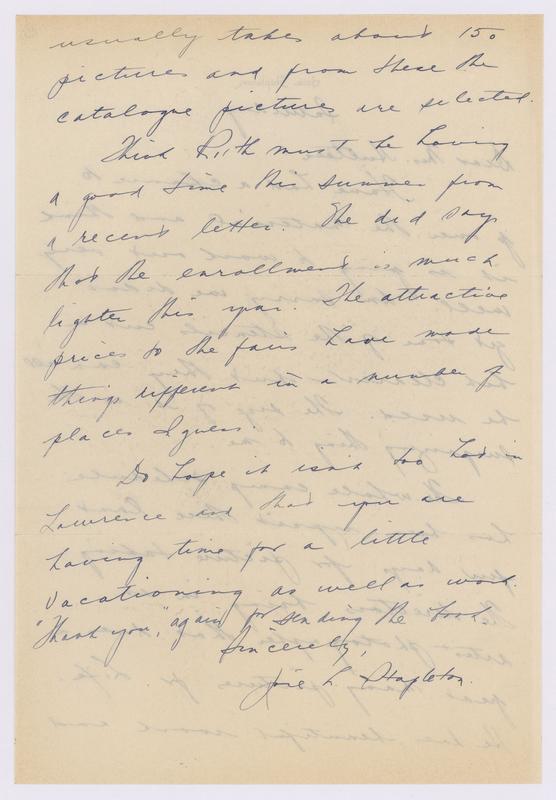 usually takes about 150
pictures and from these the
catalogue pictures are selected.
Think Ruth must be having
a good time this summer from
a recent letter. She did say
that the enrollment is much
lighter this year. The attractive
prices to the fairs have made
things different in a number of
places I guess.
Do hope it isnt too hot in
Lawrence and that you are
having time for a little
vacationing as well as work.
"Thank you," again for sending the book.
Sincerely,
Josie L. Stapleton.